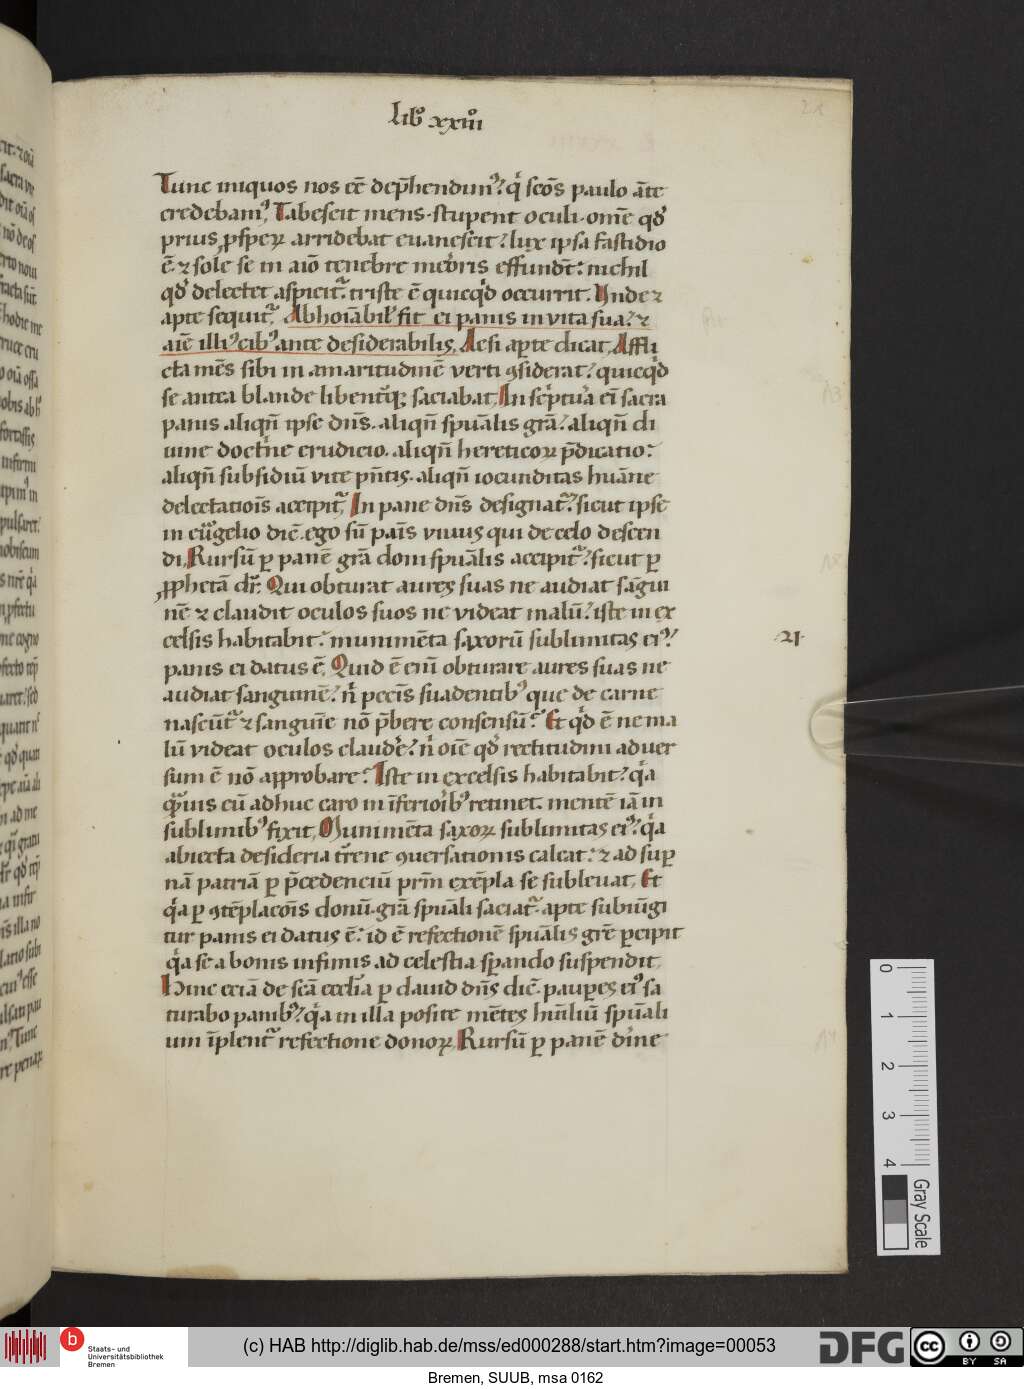 Libꝰ xxiiiꝰ
Tunc iniquos nos eē dep̄hendimꝰ? qͥ scōs paulo āte
credebamꝰ. Tabescit mens. stupent oculi. omē qd̓
prius ꝓsperꝝ arridebat euanescit? lux ipsa fastidio
ē. ⁊ sole se in aīo tenebre meroris effundt̄: nichil
qd̓ delectet aspicit᷑. triste ē quicqͥd occurrit. Vnde ⁊
apte sequit᷑. Abhoīabil̓ fit ei panis in vita sua? ⁊
aīe illiꝰ cibꝰ ante desiderabilis. Ac si aꝑte dicat. Affli
cta mēs sibi in amaritudinē verti ꝯsiderat? quicqͥd
se antea blande libent̓qꝫ saciabat. In sc̓ptura ei᷑ sacra
panis aliqn̄ ipse dn̄s. aliqn̄ spūalis grā? aliqn̄ di
uine doctͥne erudicio. aliqn̄ hereticoꝝ p̄dicatio:
aliqn̄ subsidiū vite pn̄tis. aliqn̄ iocunditas huāne
delectatiois̄ accipit᷑. In pane dn̄s designat᷑? sicut ipse
in eu᷑gelio dic̄. ego sū pais̄ viuus qui de celo descen
di. Rursū ꝑ panē grā doni spūalis accipit᷑? sicut ꝑ
ꝓphetā dr̄. Qui obturat aures suas ne audiat sāgui
nē ⁊ claudit oculos suos ne videat malū? iste in ex
celsis habitabit: munimēta saxorū sublimitas eiꝰ?
panis ei datus ē. Quid ē eni᷑ obturare aures suas ne
audiat sanguinē? n̓ pecc̄is suadentibꝰ que de carne
nascūt᷑ ⁊ sanguīe nō p̄bere consensū? Et qͥd ē ne ma
lū videat oculos claud̓e? n̓ oīe qd̓ rectitudini aduer
sum ē nō approbare? Iste in excelsis habitabit? qͥa
qͣuis eū adhuc caro in īferioribꝰ retinet. mentē iā in
sublimibꝰ fixit. Munimēta saxoꝝ sublimitas eiꝰ? qͥa
abiecta desideria t̓rene ꝯuersationis calcat: ⁊ ad suꝑ
nā patriā ꝑ p̄cedenciū prm̄ exēpla se subleuat. Et
qͥa ꝑ ꝯtēplacōis donū. grā spūali saciat᷑. apte subiūgi
tur panis ei datus ē: id ē refectionē spūalis gr̄e ꝑcipit
qͥa se a bonis infimis ad celestia sꝑando suspendit.
Hinc eciā de scā eccl̄ia ꝑ dauid dn̄s dic̄. pauꝑes eiꝰ sa
turabo panibꝰ? qͥa in illa posite mētes hūiliū spūali
um īplent᷑ refectione donoꝝ. Rursū ꝑ panē diuīne
·21·
0
1
2
3
4
Gray Scale
b
Staats- und
Universitätsbibliothek
Bremen
(c) HAB http://diglib.hab.de/mss/ed000288/start.htm?image=00053
DFG
cc
BY SA
Bremen, SUUB, msa 0162